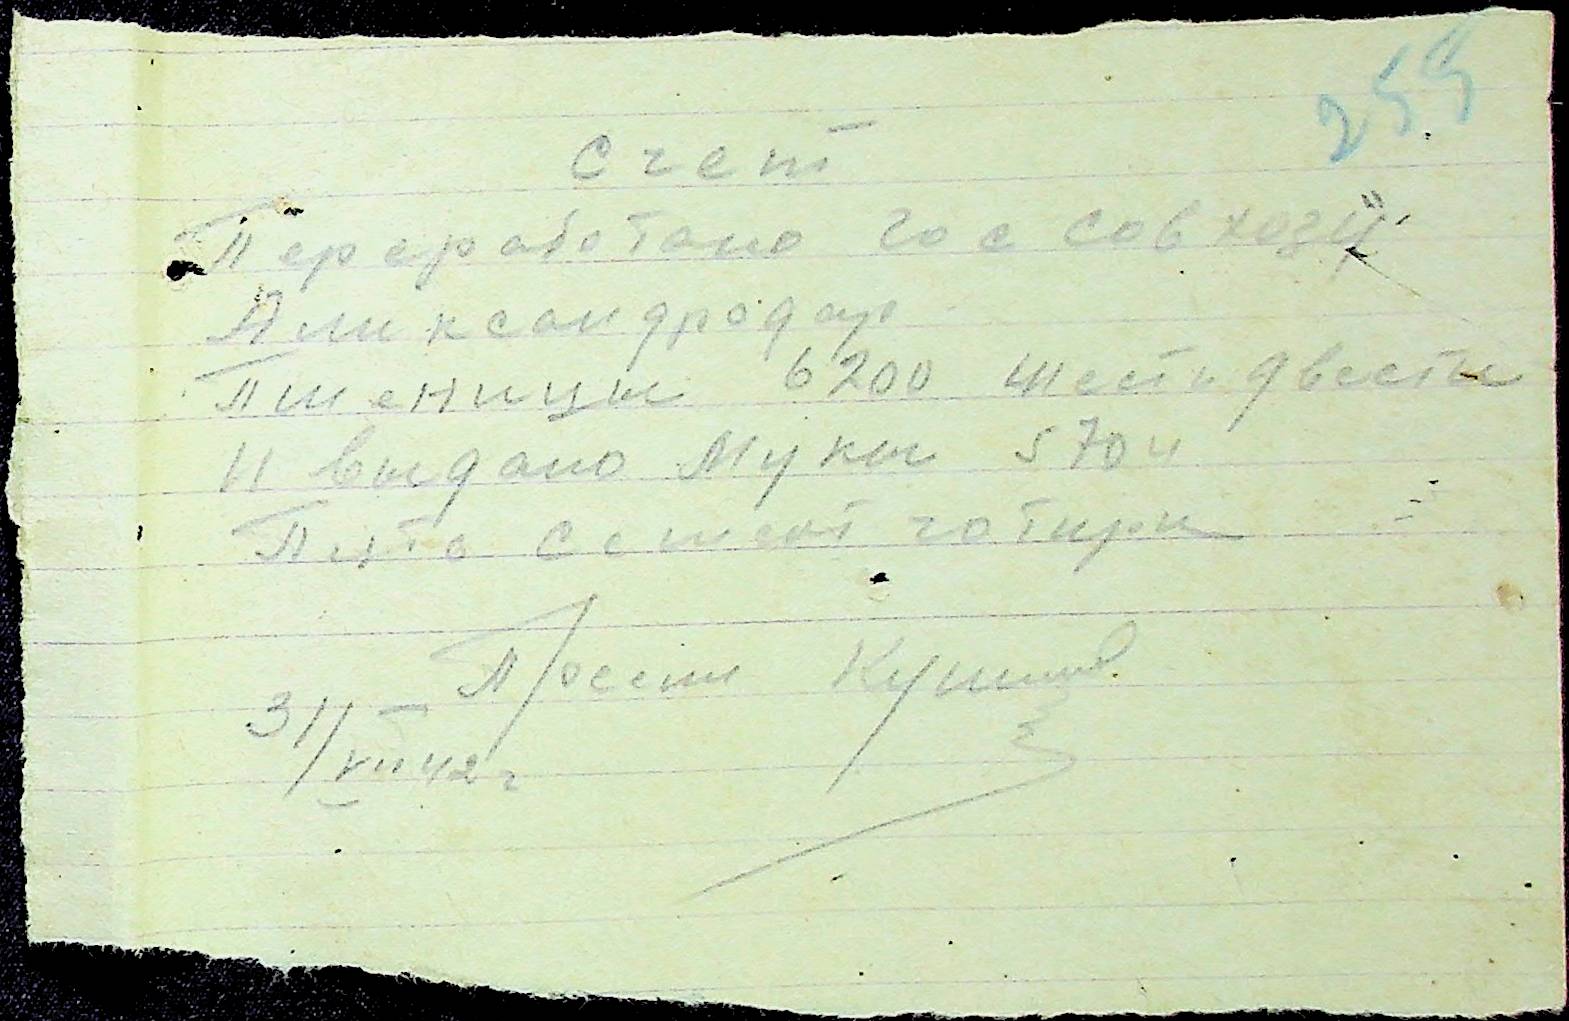 259
Счет
Переработано гос совхозу
Аликсандродар
Пшеницы 6200 шесть двести
и выдано Муки 5704
Пять семсот чотири
31/VII 42 г